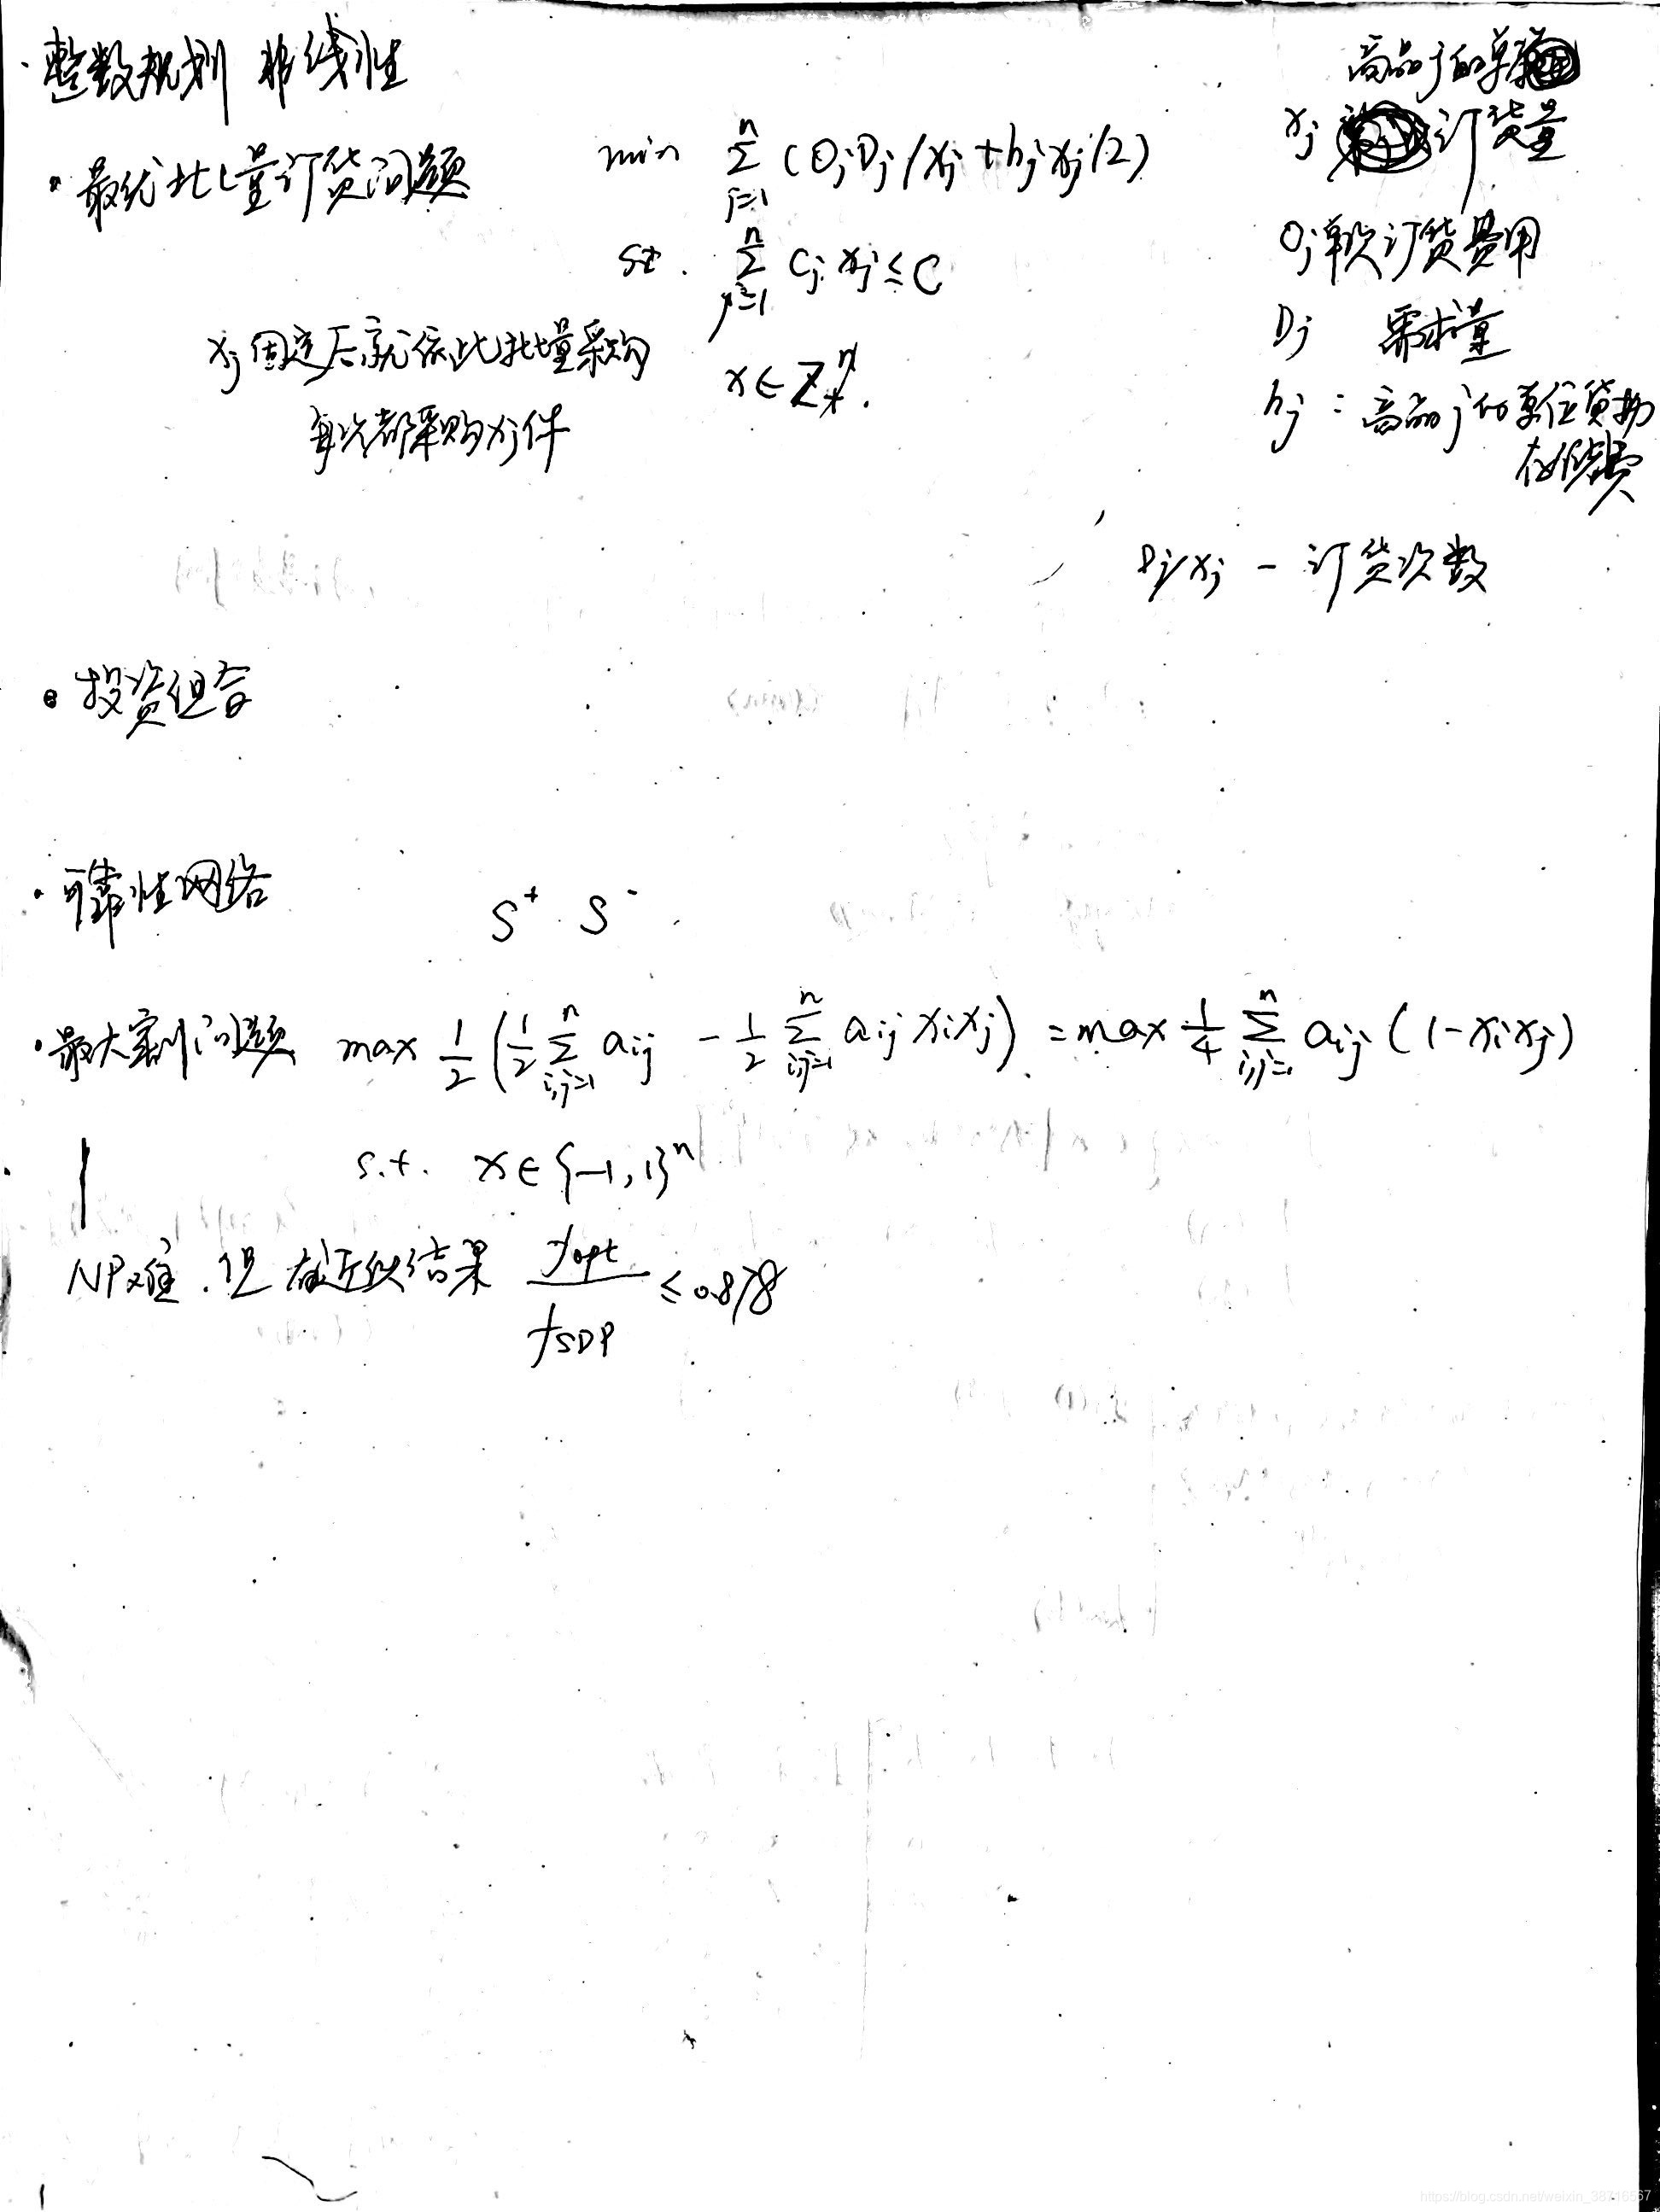 · 整数规划 非线性
· 最优批量订货问题
min \sum_{j=1}^{n} (O_j D_j / x_j + h_j x_j / 2)
st. \sum_{j=1}^{n} c_j x_j ≤ C
x ∈ Z_+^n.
x_j 固定后就依此批量采购
每次都采购x_j件
商品j的单
x_j 订货量
O_j 单次订货费用
D_j 需求量
h_j : 商品j的单位货物
存储费
D_j/x_j - 订货次数
· 投资组合
· 可靠性网络
S^+ S^-
· 最大割问题 max \frac{1}{2} ( \frac{1}{2} \sum_{i,j=1}^{n} a_{ij} - \frac{1}{2} \sum_{i,j=1}^{n} a_{ij} x_i x_j ) = max \frac{1}{4} \sum_{i,j=1}^{n} a_{ij} (1 - x_i x_j)
s.t. x ∈ {-1, 1}^n
NP难. 但 有近似结果 \frac{f_{opt}}{f_{SDP}} ≤ 0.878
https://blog.csdn.net/weixin_38716567